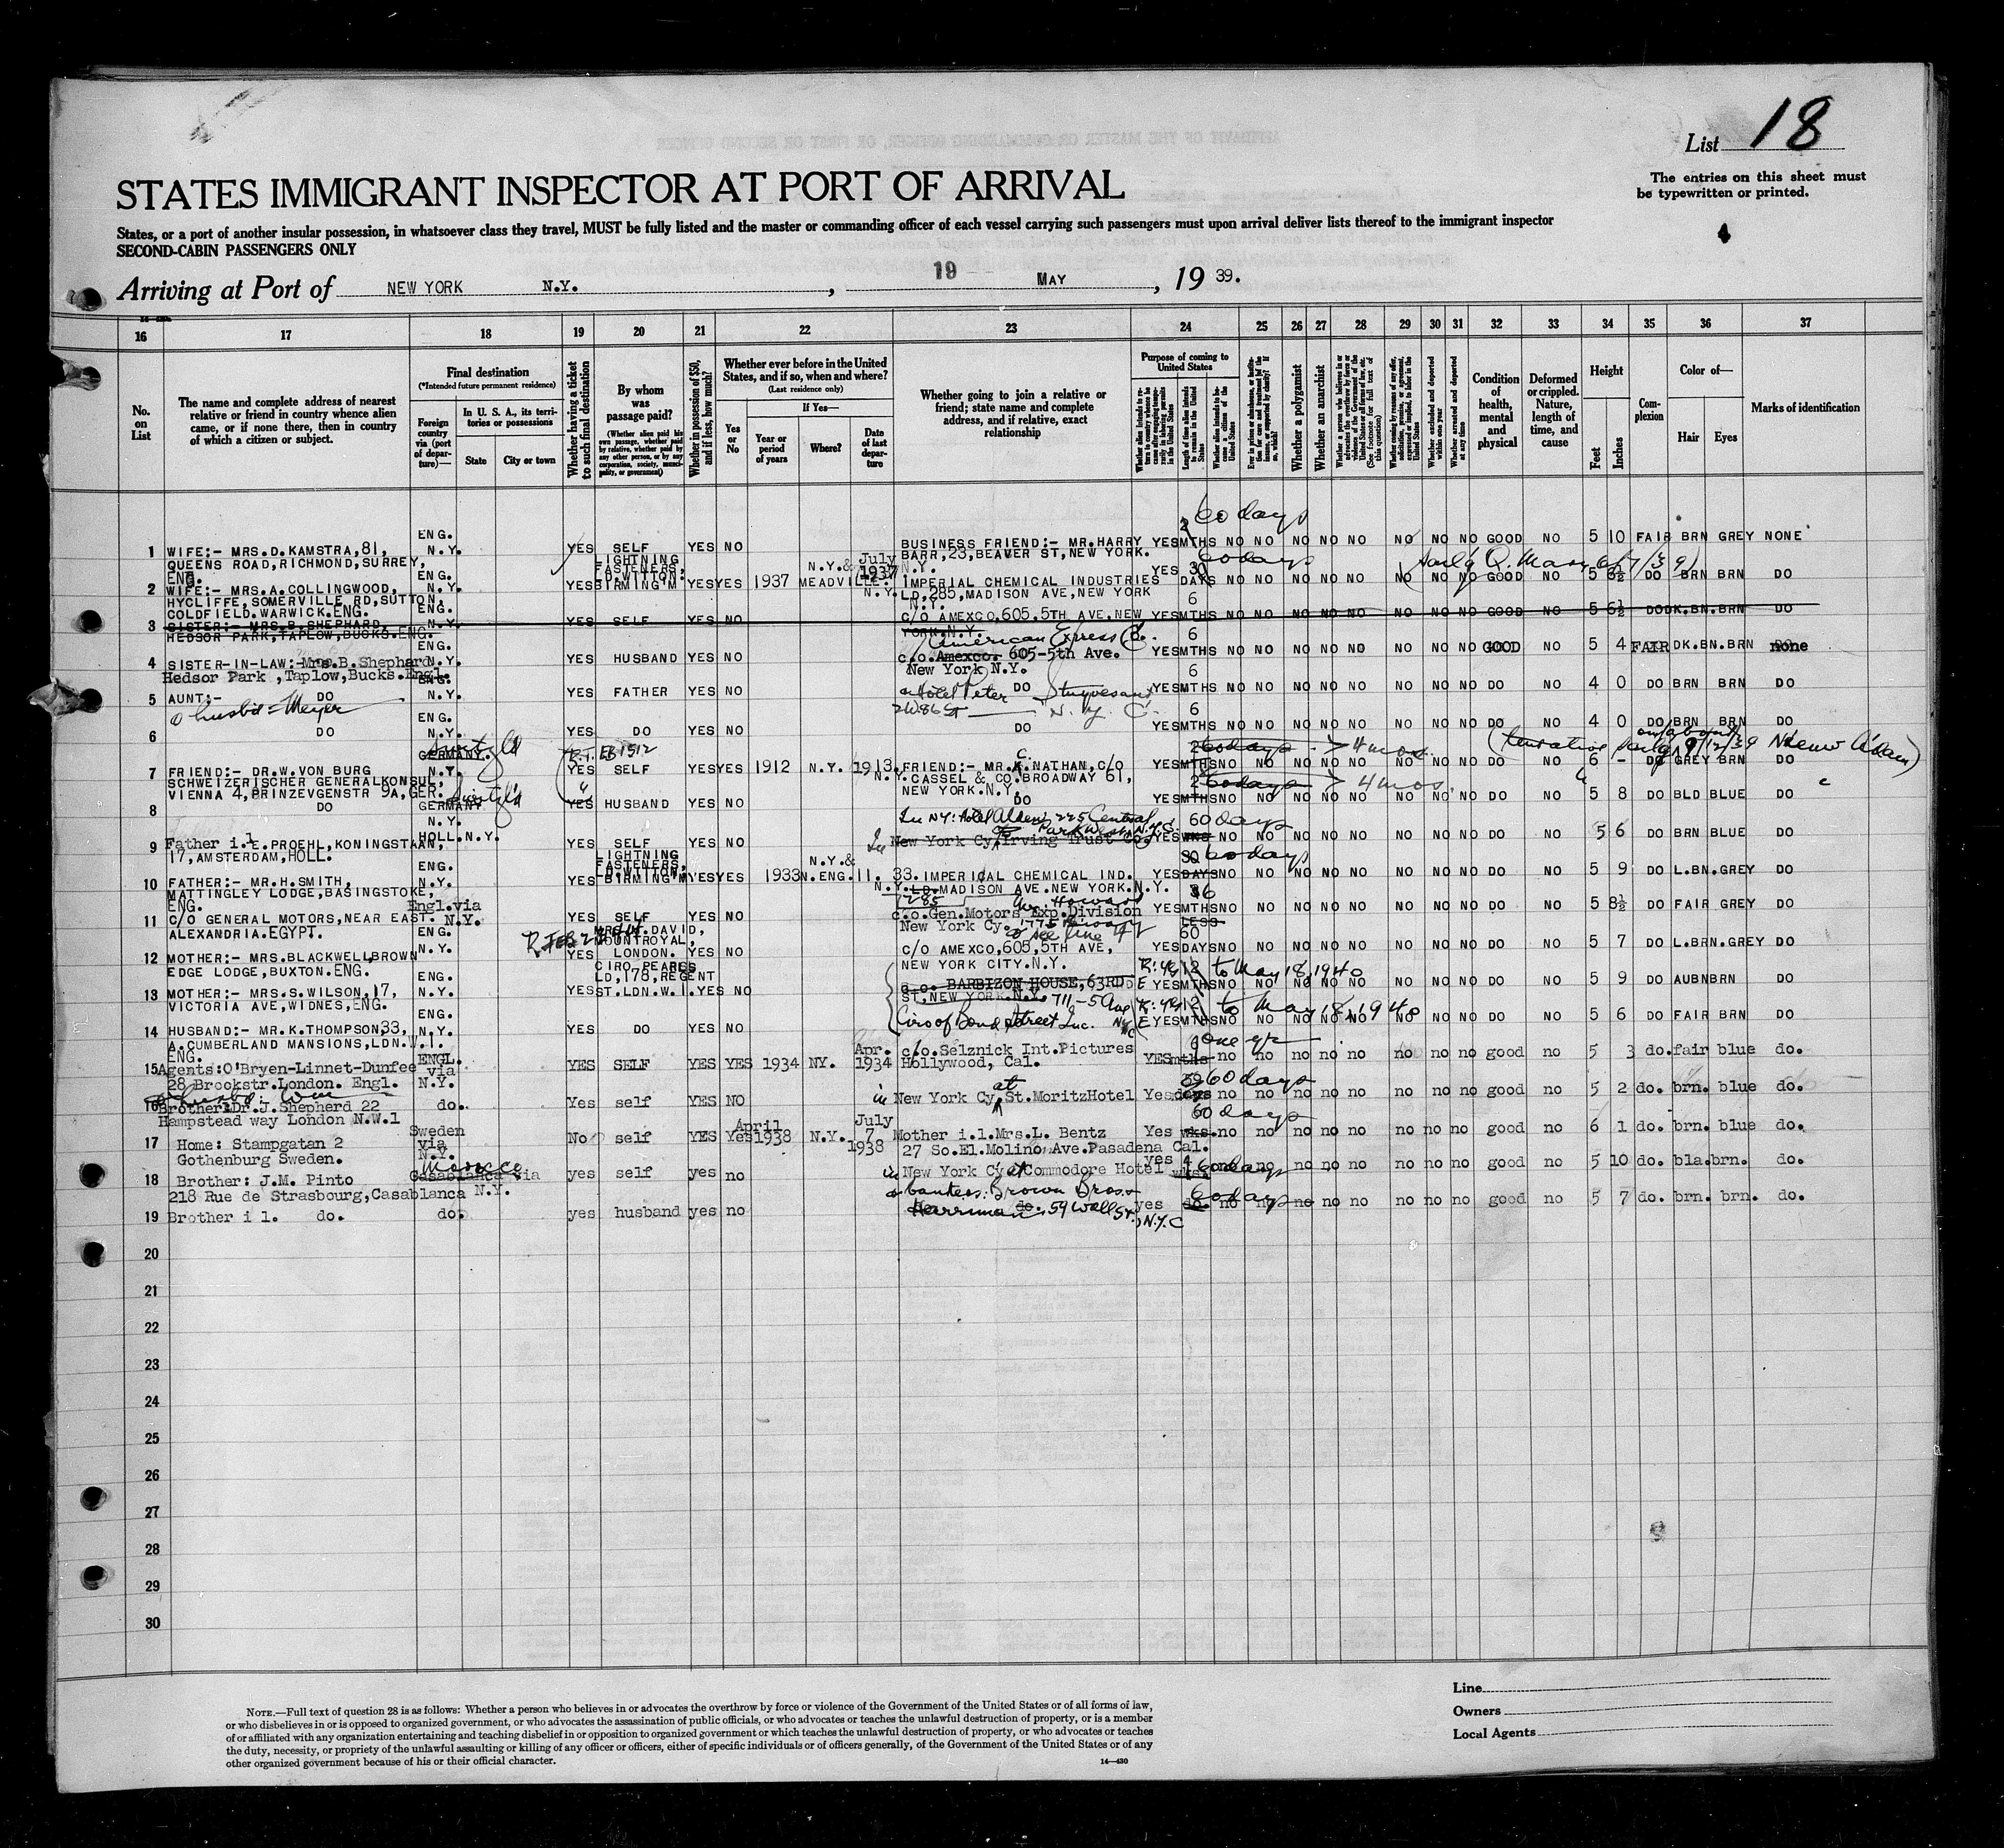 List 18
The entries on this sheet must
be typewritten or printed.
STATES IMMIGRANT INSPECTOR AT PORT OF ARRIVAL
States, or a port of another insular possession, in whatsoever class they travel, MUST be fully listed and the master or commanding officer of each vessel carrying such passengers must upon arrival deliver lists thereof to the immigrant inspector
SECOND-CABIN PASSENGERS ONLY
Arriving at Port of NEW YORK N.Y. , 19 MAY , 19 39.
16 17 18 19 20 21 22 23 24 25 26 27 28 29 30 31 32 33 34 35 36 37
No. on List
The name and complete address of nearest relative or friend in country whence alien came, or if none there, then in country of which a citizen or subject.
Final destination
(*Intended future permanent residence)
Foreign country via (port of departure)—
In U. S. A., its territories or possessions
State
City or town
Whether having a ticket to such final destination
By whom was passage paid?
(Whether alien paid his own passage, whether paid by relative, whether paid by any other person, or by any corporation, society, municipality, or government)
Whether in possession of $50, and if less, how much?
Whether ever before in the United States, and if so, when and where?
(Last residence only)
Yes or No
If Yes—
Year or period of years
Where?
Date of last departure
Whether going to join a relative or friend; state name and complete address, and if relative, exact relationship
Purpose of coming to United States
Length of time alien intends to remain in the United States
Whether a polygamist
Whether an anarchist
Whether arrested and deported at any time
Condition of health, mental and physical
Deformed or crippled. Nature, length of time, and cause
Height
Feet
Inches
Complexion
Color of—
Hair
Eyes
Marks of identification
60 days
1 WIFE:- MRS.D.KAMSTRA,81, ENG. N.Y. YES SELF YES NO BUSINESS FRIEND:- MR.HARRY YES MTHS NO NO NO NO NO NO NO NO GOOD NO 5 10 FAIR BRN GREY NONE
QUEENS ROAD,RICHMOND,SURREY, ENG. BARR,23,BEAVER ST,NEW YORK. N.Y.
2 WIFE:- MRS.A.COLLINGWOOD, ENG. N.Y. YES LIGHTNING FASTENERS, LD.WITTON, BIRMING'M YES YES 1937 N.Y.& MEADVILLE. July 1937 N.Y. IMPERIAL CHEMICAL INDUSTRIES YES 30 DAYS NO NO NO NO NO NO NO NO GOOD NO 5 6½ DO BRN BRN DO
HYCLIFFE,SOMERVILLE RD,SUTTON, LD,285,MADISON AVE,NEW YORK
COLDFIELD.WARWICK.ENG. N.Y.
3 SISTER:- MRS.B.SHEPHARD, ENG. N.Y. YES SELF YES NO C/O AMEXCO,605.5TH AVE,NEW YES 6 MTHS NO NO NO NO NO NO NO NO GOOD NO 5 6½ DO DK.BN.BRN DO
HEDSOR PARK,TAPLOW,BUCKS.ENG. YORK.N.Y.
American Express Co.
4 SISTER-IN-LAW:-Mrs.B.Shephard ENG. N.Y. YES HUSBAND YES NO c.o.Amexco. 605-5th Ave. YES 6 MTHS NO NO NO NO NO NO NO NO GOOD NO 5 4 FAIR DK.BN.BRN none
Hedsor Park ,Taplow,Bucks.Engl. New York N.Y.
5 AUNT:- DO ENG. N.Y. YES FATHER YES NO DO YES 6 MTHS NO NO NO NO NO NO NO NO DO NO 4 0 DO BRN BRN DO
Hotel Peter Stuyvesant
2W86St N.Y.C.
6 DO ENG. N.Y. YES DO YES NO DO YES 6 MTHS NO NO NO NO NO NO NO NO DO NO 4 0 DO BRN BRN DO
7 FRIEND:- DR.W.VON BURG GERMANY. N.Y. YES SELF YES YES 1912 N.Y. 1913. N.Y. FRIEND:- MR.K.NATHAN,C/O YES MTHS NO NO NO NO NO NO NO NO DO NO 6 - DO GREY BRN DO
SCHWEIZERISCHER GENERALKONSUL, CASSEL & CO.BROADWAY 61,
VIENNA 4,PRINZEVGENSTR 9A,GER. NEW YORK.N.Y.
8 DO GERMANY N.Y. YES HUSBAND YES NO DO YES MTHS NO NO NO NO NO NO NO NO DO NO 5 8 DO BLD BLUE DO
9 Father i.l. E.PROEHL,KONINGSTAAN, HOLL.N.Y. YES SELF YES NO New York Cy, Irving Trust Co. YES 60 days NO NO NO NO NO NO NO NO DO NO 5 6 DO BRN BLUE DO
17,AMSTERDAM,HOLL.
10 FATHER:- MR.H.SMITH, ENG. N.Y. YES LIGHTNING FASTENERS, LD.WITTON, BIRMING'M YES YES 1933 N.Y.& N.ENG. 11. 33. N.Y. IMPERIAL CHEMICAL IND. YES DAYS NO NO NO NO NO NO NO NO DO NO 5 9 DO L.BN.GREY DO
MATTINGLEY LODGE,BASINGSTOKE, LD.MADISON AVE.NEW YORK.N.Y.
ENG. 285
11 C/O GENERAL MOTORS,NEAR EAST. Engl.via N.Y. YES SELF YES NO c.o.Gen.Motors Exp.Division YES MTHS NO NO NO NO NO NO NO NO DO NO 5 8½ DO FAIR GREY DO
ALEXANDRIA.EGYPT. New York Cy. LESS
12 MOTHER:- MRS.BLACKWELLBROWN ENG. N.Y. YES DAVID, MOUNTROYAL, LONDON. YES NO C/O AMEXCO,605,5TH AVE, YES 60 DAYS NO NO NO NO NO NO NO NO DO NO 5 7 DO L.BRN.GREY DO
EDGE LODGE,BUXTON.ENG. NEW YORK CITY.N.Y.
13 MOTHER:- MRS.S.WILSON,17, ENG. N.Y. YES CIRO PEARLS LD,178,REGENT ST.LDN.W.I. YES NO c.o. BARBIZON HOUSE,63RD YES 12 MTHS to May 18, 1940 NO NO NO NO NO NO NO NO DO NO 5 9 DO AUBN BRN DO
VICTORIA AVE,WIDNES,ENG. ST,NEW YORK.N.Y. 711-5 Ave
14 HUSBAND:- MR.K.THOMPSON,33, ENG. N.Y. YES DO YES NO Ciro of Bond Street Inc. YES 12 MTHS to May 18, 1940 NO NO NO NO NO NO NO NO DO NO 5 6 DO FAIR BRN DO
A.CUMBERLAND MANSIONS,LDN.W.I.
ENG.
15 Agents:O'Bryen-Linnet-Dunfee ENGL. via N.Y. YES SELF YES YES 1934 NY. Apr. 1934 c/o.Selznick Int.Pictures YES mths one yr no no no no no no no no good no 5 3 do. fair blue do.
28 Brookstr.London. Engl. Hollywood, Cal.
16 Brother:Dr.J.Shepherd 22 do. Yes self YES NO in New York Cy, at St.MoritzHotel Yes days 60 days no no no no no no no no good no 5 2 do. brn. blue do.
Hampstead way London N.W.1
17 Home: Stampgatan 2 Sweden via N.Y. No self YES Yes April 1938 N.Y. July 7 1938 Mother i.l.Mrs.L. Bentz Yes wks. 60 days no no no no no no no no good no 6 1 do. brn. blue do.
Gothenburg Sweden. 27 So.El.Molino Ave.Pasadena Cal.
18 Brother: J.M. Pinto Morocco Casablanca via N.Y. yes self yes no in New York Cy at Commodore Hotel yes 4 wks. 60 days no no no no no no no good no 5 10 do. bla.brn. do.
218 Rue de Strasbourg,Casablanca
bankers: Brown Bros. &
19 Brother i l. do. do. yes husband yes no Harriman 59 Wall St., N.Y.C yes do. 60 days no no no no no no no no good no 5 7 do. brn. brn. do.
20
21
22
23
24
25
26
27
28
29
30
NOTE.—Full text of question 28 is as follows: Whether a person who believes in or advocates the overthrow by force or violence of the Government of the United States or of all forms of law,
or who disbelieves in or is opposed to organized government, or who advocates the assassination of public officials, or who advocates or teaches the unlawful destruction of property, or is a member
of or affiliated with any organization entertaining and teaching disbelief in or opposition to organized government or which teaches the unlawful destruction of property, or who advocates or teaches
the duty, necessity, or propriety of the unlawful assaulting or killing of any officer or officers, either of specific individuals or of officers generally, of the Government of the United States or of any
other organized government because of his or their official character.
14—430
Line
Owners
Local Agents